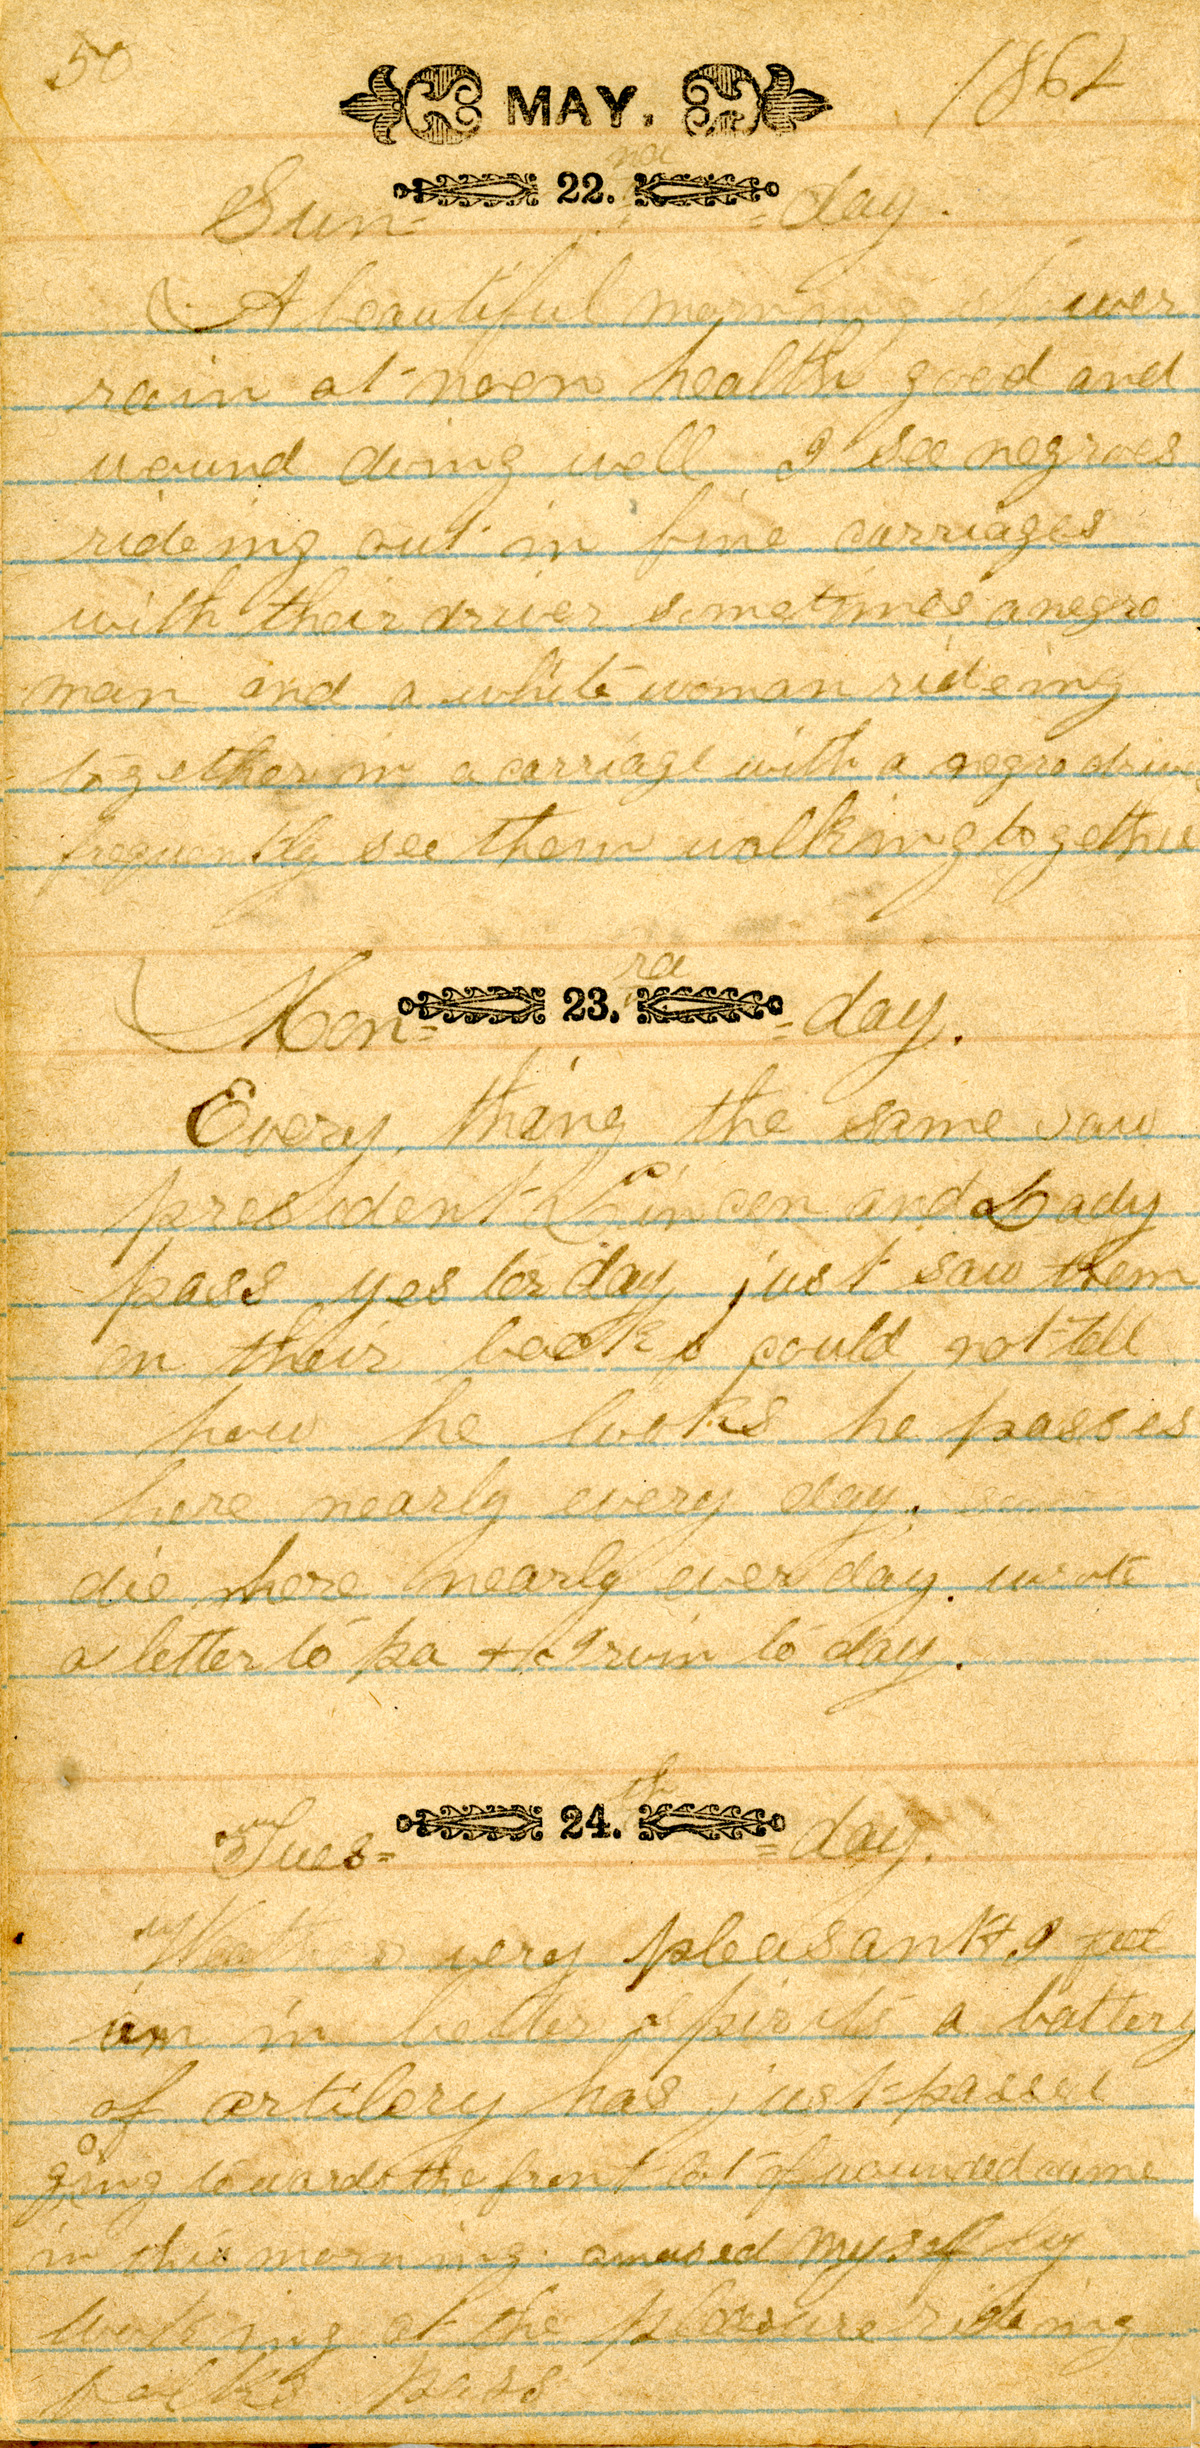 50
1864
MAY.
22.nd
Sun= =day.
A beautiful morning shower
rain at noon health good and
wound doing well I see negroes
rideing out in fine carriages
with their driver sometimes a negro
man and a white woman rideing
together in a carriage with a negro driv
frequently see them walking togethe
23.rd
Mon= =day.
Every thing the same saw
president Lincoen and Lady
pass yesterday just saw them
on their backs could not tell
how he looks he passes
here nearly every day. some
die here nearly ever day. wrote
a letter to pa + Irvin to day.
24.th
Tues= =day.
Weather very pleasant I feel
am in better spirits a battery
of artilery has just passed
going towards the front lot of wounded came
in this morning amused myself by
looking at the pleasure rideing
folks pass